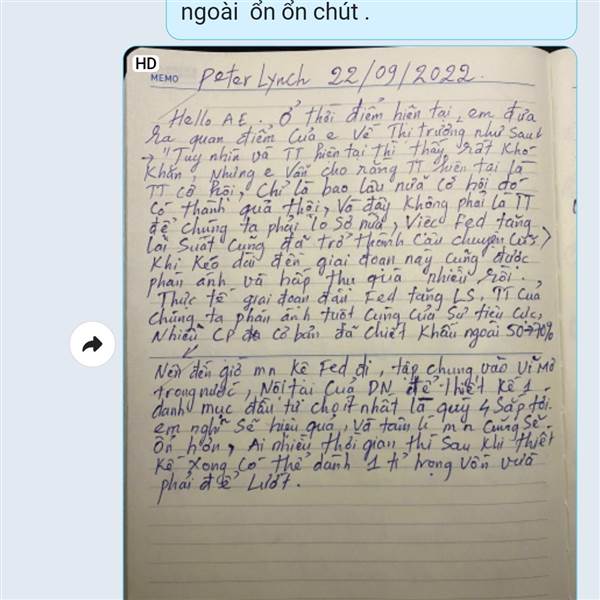 ngoài ổn ổn chút .
HD
MEMO
Peter Lynch 22/09/2022.
Hello AE. Ở thời điểm hiện tại, em đưa
ra quan điểm của e về Thị trường như sau:
→ "Tuy nhìn và TT hiện tại thì thấy rất khó
khăn, Nhưng e vẫn cho rằng TT hiện tại là
TT cơ hội, Chỉ là bao lâu nữa cơ hội đó
có thành quả thôi, Và đây không phải là TT
để chúng ta phải lo sợ nữa, Việc Fed tăng
lãi suất cũng đã trở thành câu chuyện cũ
khi kéo dài đến giai đoạn này cũng được
phản ánh và hấp thụ quá nhiều rồi.
Thực tế giai đoạn đầu Fed tăng LS, TT của
chúng ta phản ánh tuốt cung của sự tiêu cực,
Nhiều CP cơ bản đã chiết khấu ngoài 50→70%
Nên đến giờ mn kệ Fed đi, tập chung vào vĩ mô
trong nước, Nội tại của DN để thiết kế 1
danh mục đầu tư cho ít nhất là quý 4 sắp tới.
em nghĩ sẽ hiệu quả, và tâm lí mn cũng sẽ
ổn hơn, Ai nhiều thời gian thì sau khi thiết
kế xong có thể dành 1 tỉ trọng vốn vừa
phải để lướt.